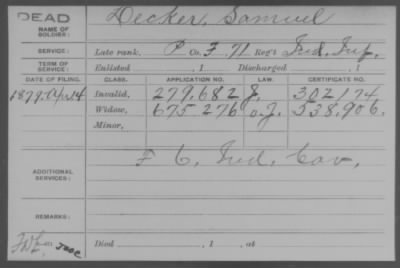 DEAD
NAME OF SOLDIER: Decker, Samuel
SERVICE: Late rank, P Co. F. 71 Reg't Ind. Inf.
TERM OF SERVICE: Enlisted , 1 Discharged , 1
DATE OF FILING. CLASS. APPLICATION NO. LAW. CERTIFICATE NO.
1879. Apr. 14 Invalid, 279.682 J. 302174
Widow, 675.276 O.J. 538.906.
Minor,
ADDITIONAL SERVICES: F 6, Ind. Cav.
REMARKS:
Died , 1 , at